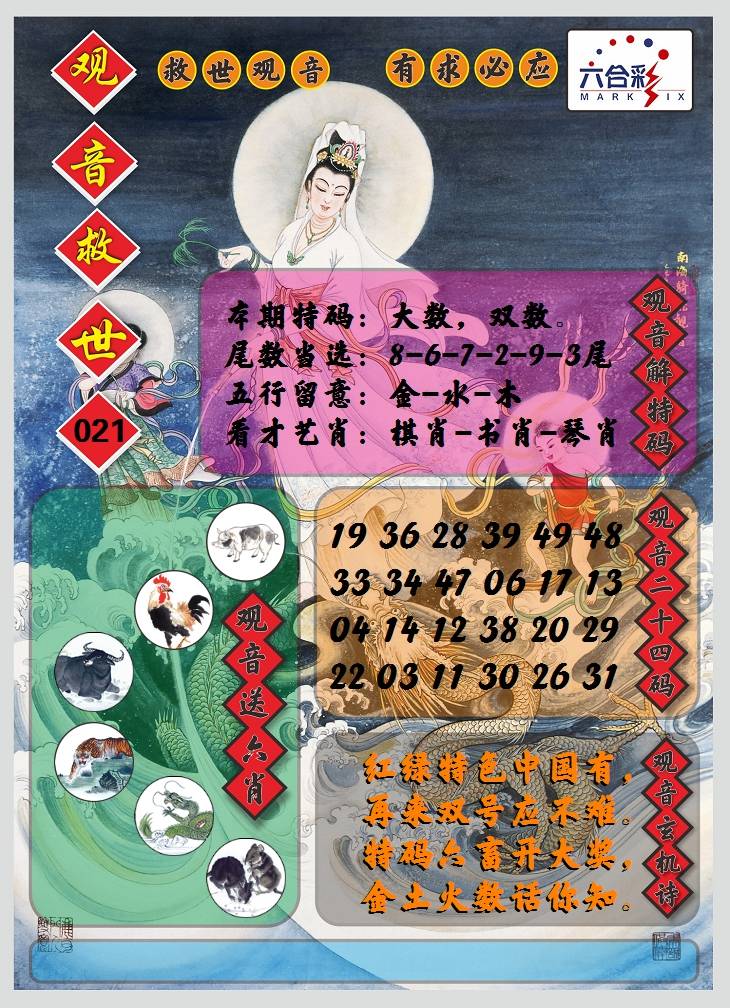 救世观音 有求必应
六合彩
MARK SIX
观音救世
021
南海
观音解特码
本期特码：大数，双数。
尾数当选：8-6-7-2-9-3尾
五行留意：金-水-木
看才艺肖：棋肖-书肖-琴肖
观音送六肖
观音二十四码
19 36 28 39 49 48
33 34 47 06 17 13
04 14 12 38 20 29
22 03 11 30 26 31
观音玄机诗
红绿特色中国有，
再来双号应不难。
特码六畜开大奖，
金土火数话你知。